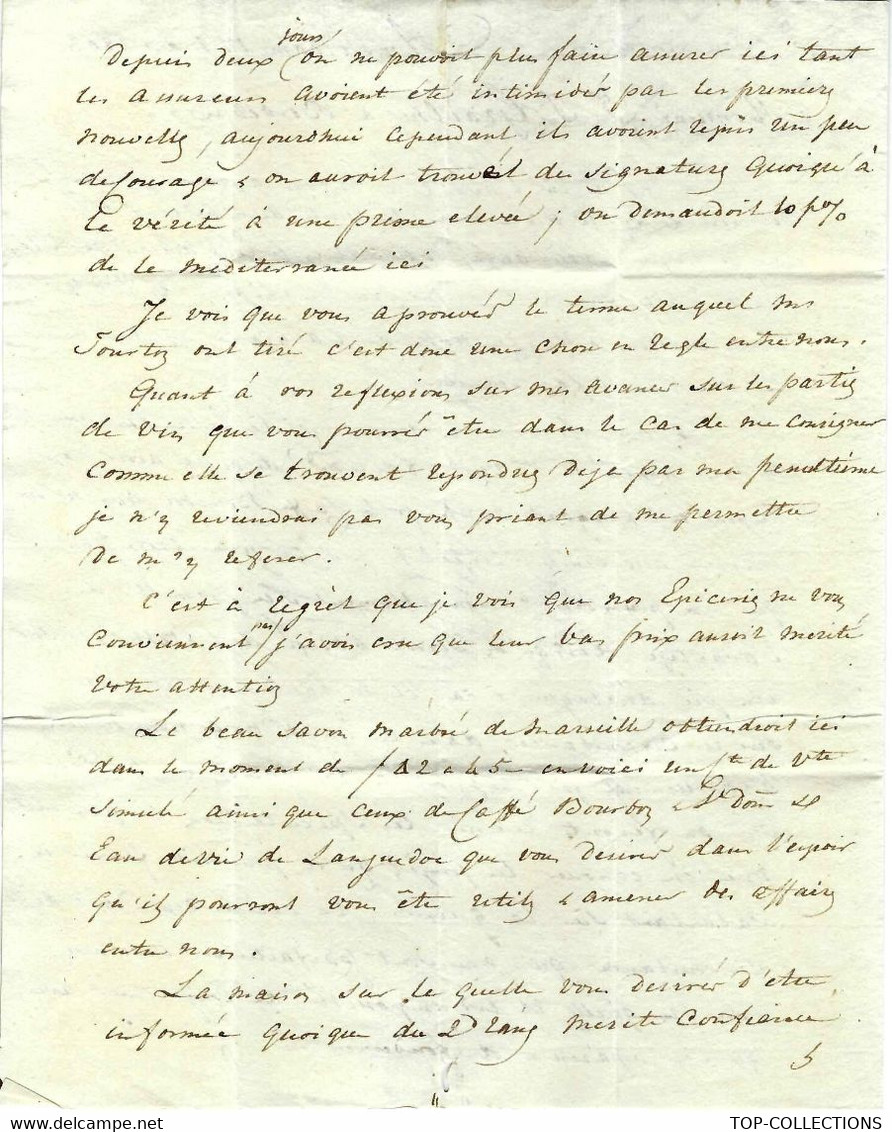 jours
Depuis deux on ne pouvoit plus faire assurer ici tant
les assureurs avoient été intimidés par les premieres
nouvelles, aujourdhui cependant ils avoient repris un peu
de Courage & on auroit trouvé des signatures quoique à
la vérité à une prime elevée ; on demandoit 10 p%
de la mediterranée ici
Je vois que vous aprouvés le terme auquel mrs
Tourton ont tiré c'est donc une chose en regle entre nous.
Quant à vos reflexions sur mes avances sur les parties
de vin que vous pourrés être dans le cas de me consigner
comme elle se trouvent repondues deja par ma penultième
je n'y reviendrai pas vous priant de me permettre
de m'y referer.
C'est à regrèt que je vois que nos Epiceries ne vous
Conviennent pas j'avois cru que leur bas prix auroit merité
votre attention
Le beau savon marbré de Marseille obtiendroit ici
dans le moment de f 42 a 45 en voici un Cte de Vte
simulé ainsi que ceux de Caffé Bourbon & St Dom &
Eau de vie de Languedoc que vous desirés dans l'espoir
qu'ils pourront vous être utiles & amener des affaires
entre nous.
La maison sur la quelle vous desirés d'être
informée quoique du 2d rang merite Confiance
TOP-COLLECTIONS